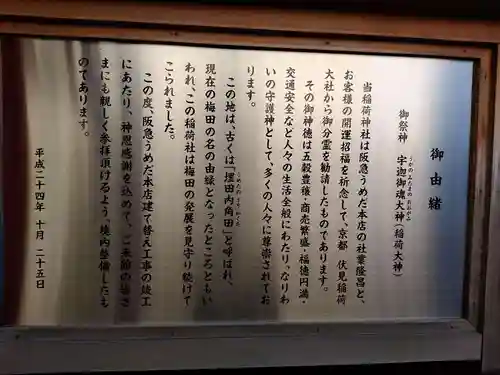 御由緒
御祭神 宇迦御魂大神(稲荷大神)
うかのみたまのおおかみ
当稲荷神社は阪急うめだ本店の社業隆昌と、
お客様の開運招福を祈念して、京都 伏見稲荷
大社から御分霊を勧請したものであります。
その御神徳は五穀豊穣・商売繁盛・福徳円満・
交通安全など人々の生活全般にわたり、なりわ
いの守護神として、多くの人々に尊崇されてお
ります。
この地は、古くは「埋田内角田」と呼ばれ、
現在の梅田の名の由縁となったところともい
われ、この稲荷社は梅田の発展を見守り続けて
こられました。
この度、阪急うめだ本店建て替え工事の竣工
にあたり、神恩感謝を込めて、ご来館の皆さ
まにも親しく参拝頂けるよう、境内整備したも
のであります。
平成二十四年 十月 二十五日